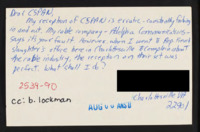 Dear CSPAN,
My reception of CSPAN is erratic - constantly fading
in and out. My cable company - Adelphia Communications -
says it's your fault. However, when I went to Rep. French
Slaughter's office here in Charlottesville to complain about
the cable industry, the reception on their set was
perfect. What shall I do?
2539-90
cc: b. lockman
AUG
Charlottesville VA
22901